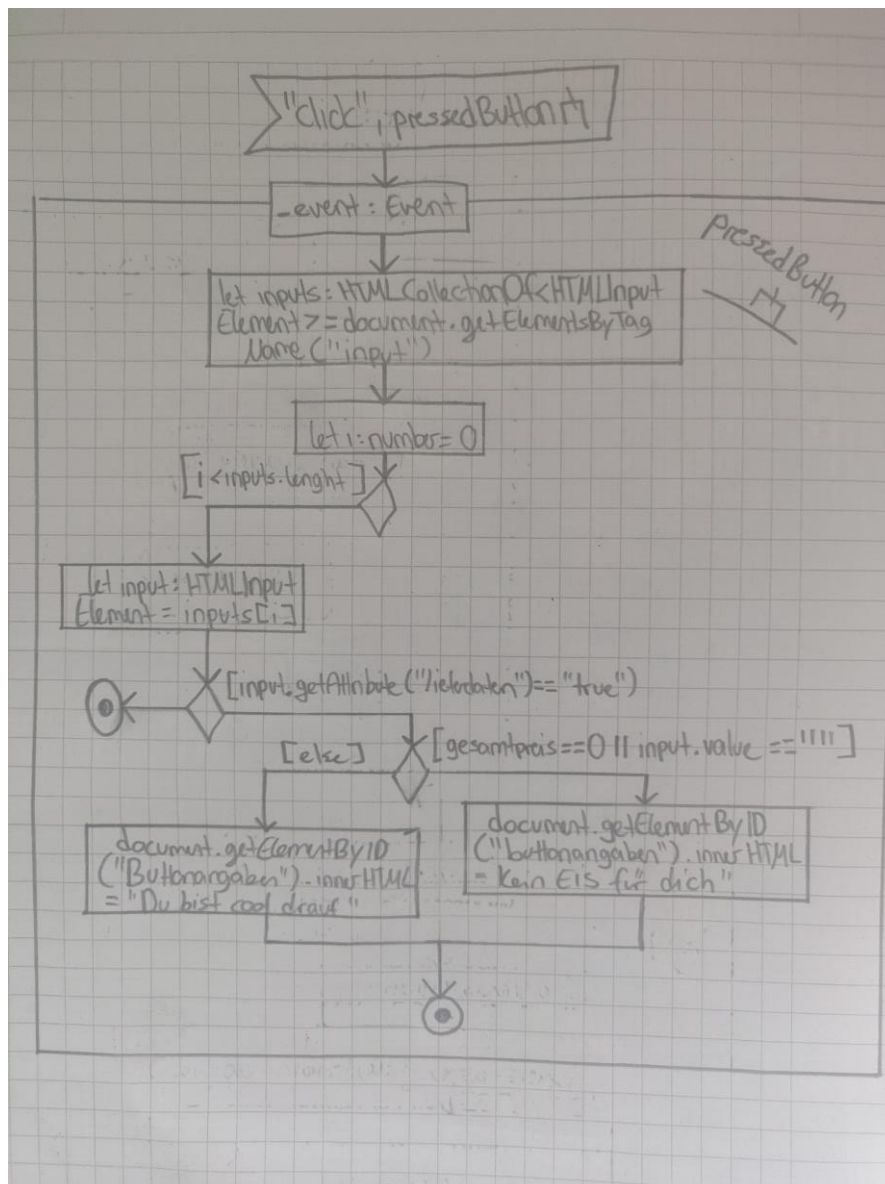 "click", pressedButton
_event: Event
PressedButton
let inputs: HTMLCollectionOf<HTMLInput
Element>=document.getElementsByTag
Name ("input")
let i:number= 0
[i<inputs.lenght]
let input: HTMLInput
Element = inputs[i]
[input.getAttribute ("lieferdaten")== "true")
[else]
[gesamtpreis==0 || input.value ==""]
document.getElementByID
("Buttonangaben").innerHTML
= "Du bist cool drauf"
document.getElementByID
("buttonangaben").innerHTML
= Kein EIS für dich"